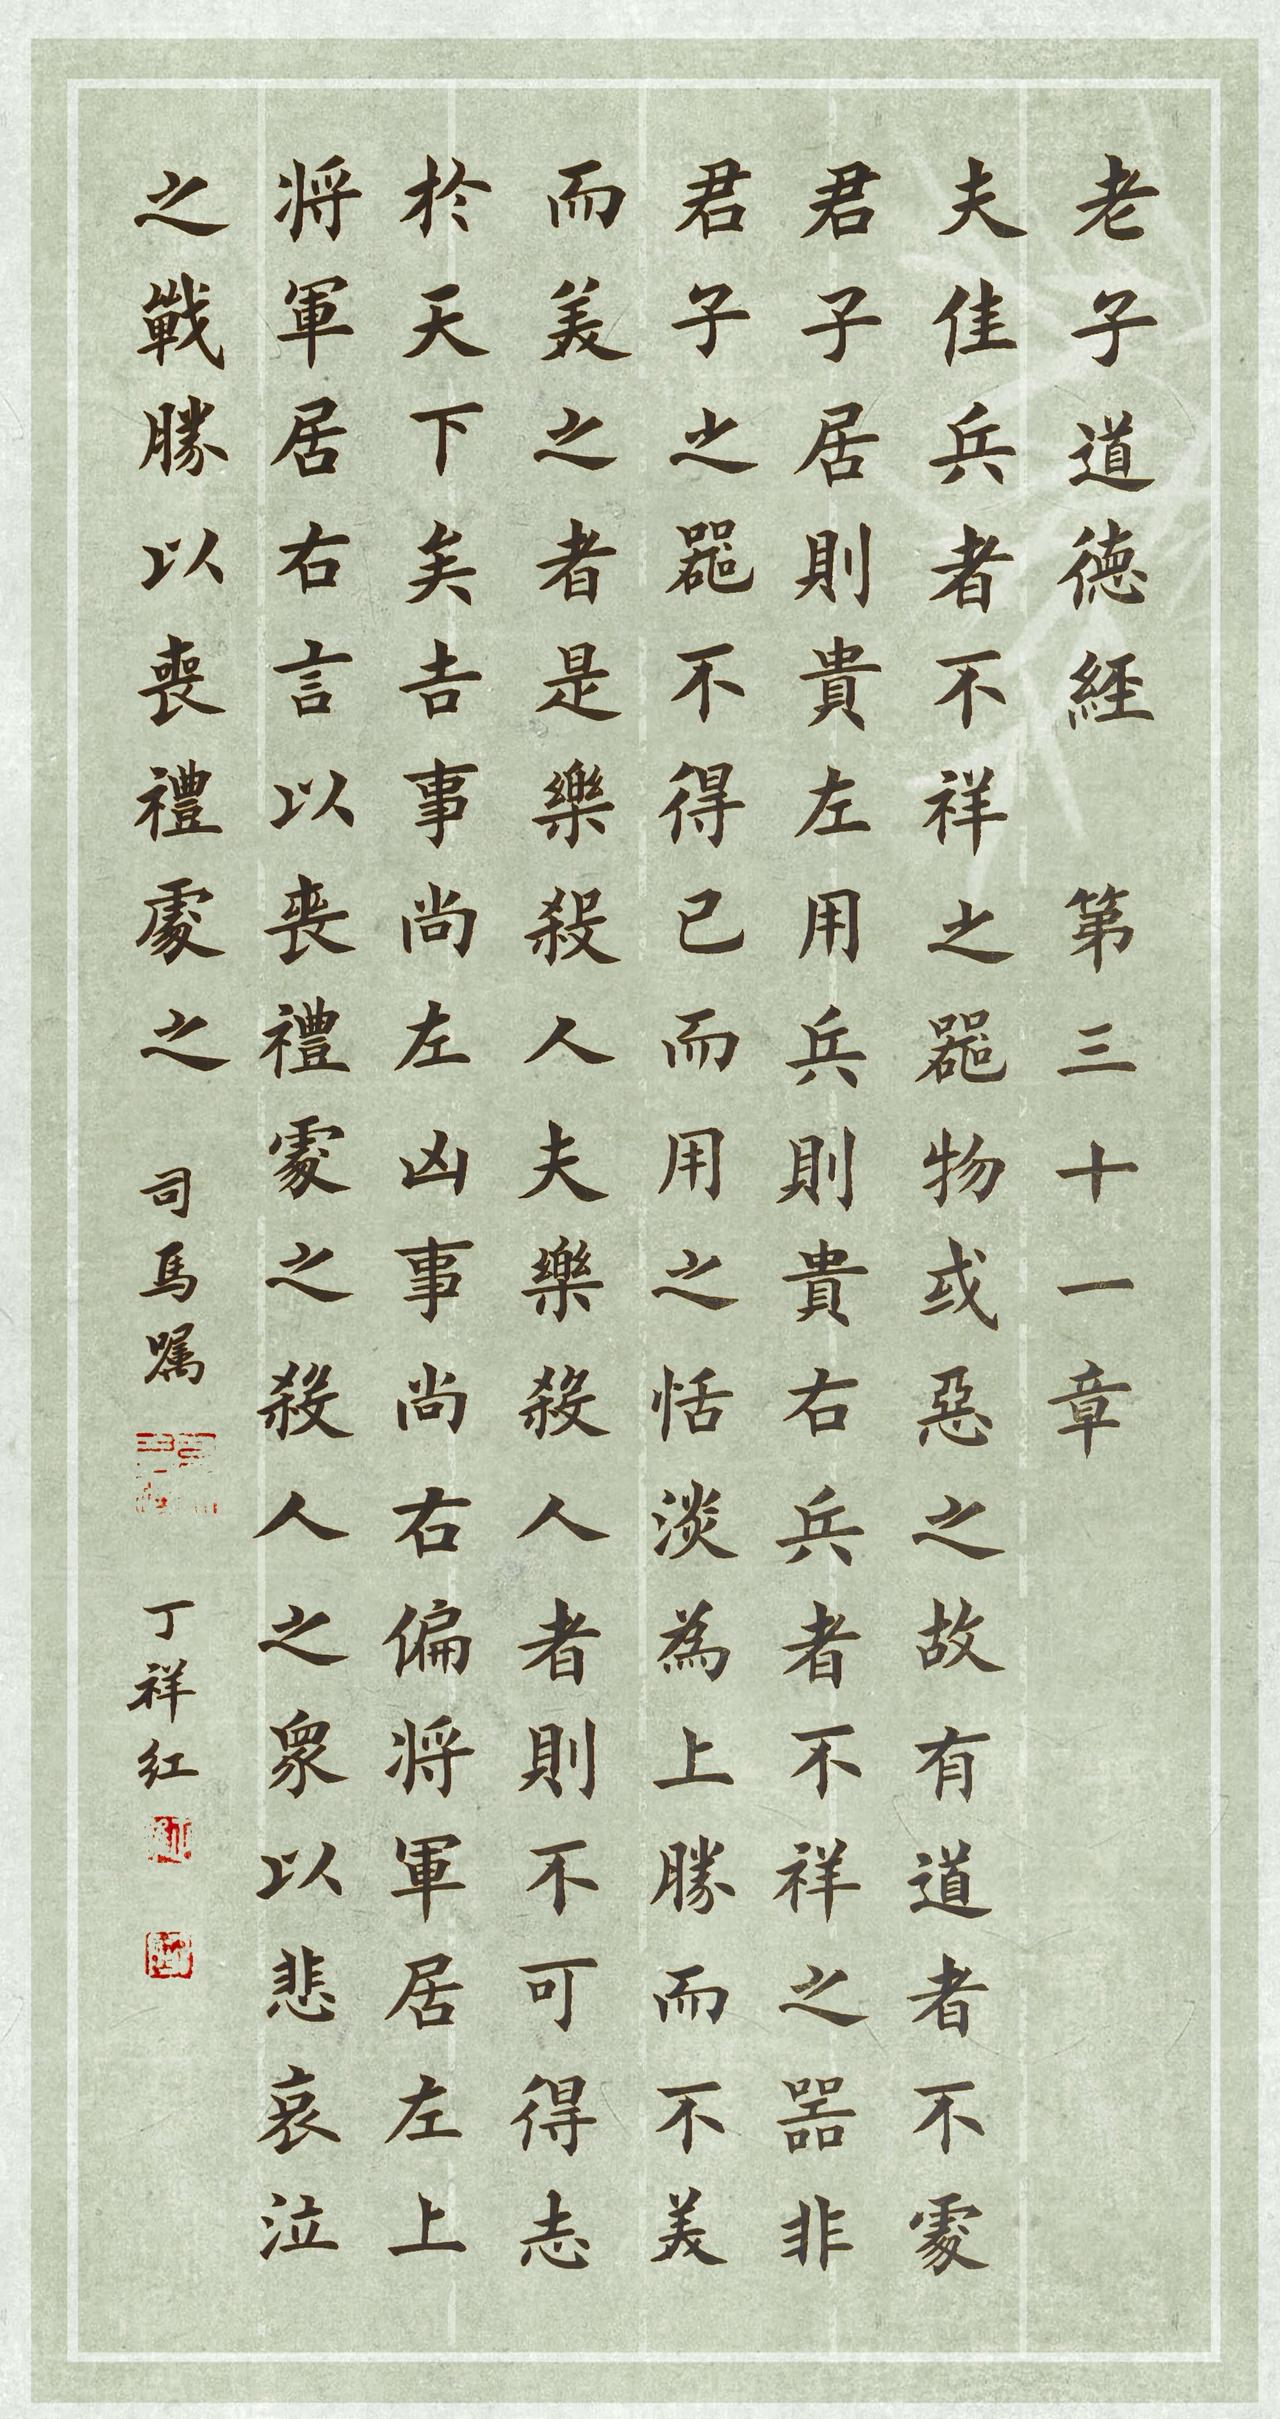 老子道德經　第三十一章
夫佳兵者不祥之器物或惡之故有道者不處
君子居則貴左用兵則貴右兵者不祥之器非
君子之器不得已而用之恬淡為上勝而不美
而美之者是樂殺人夫樂殺人者則不可得志
於天下矣吉事尚左凶事尚右偏将軍居左上
将軍居右言以喪禮處之殺人之眾以悲哀泣
之戰勝以喪禮處之　司馬嘱　丁祥红